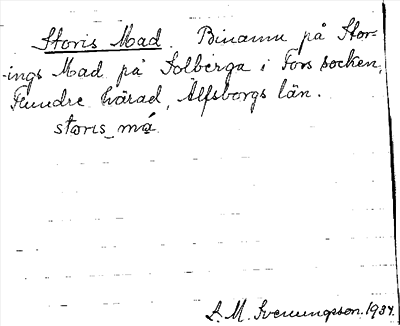 Storis Mad. Binamn på Stor-
ings Mad på Solberga i Fors socken,
Flundre härad, Älfsborgs län.
storis má
S. M. Svenungsson. 1934.